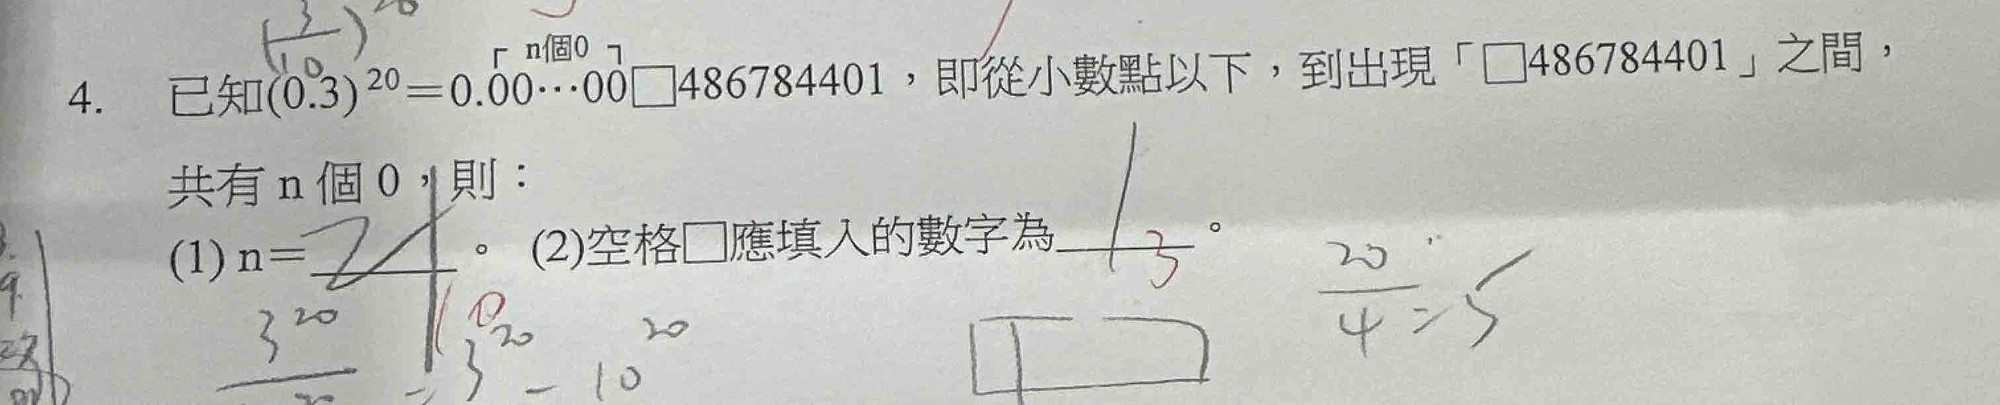 (3/10)²⁰
┌ n個0 ┐
4. 已知(0.3)²⁰=0.00⋯00□486784401,即從小數點以下,到出現「□486784401」之間,
共有 n 個 0,則:
(1) n=24。 (2)空格□應填入的數字為1。
10 3
20/4=5
3²⁰ = 3²⁰ - 10²⁰
9
27